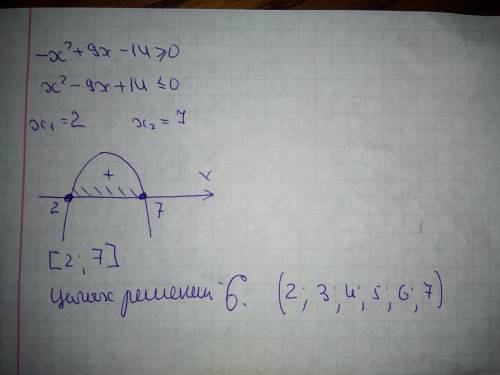 -x²+9x-14≥0
x²-9x+14≤0
x₁=2 x₂=7
+
2 7 x
[2; 7]
Целых решений 6. (2; 3; 4; 5; 6; 7)